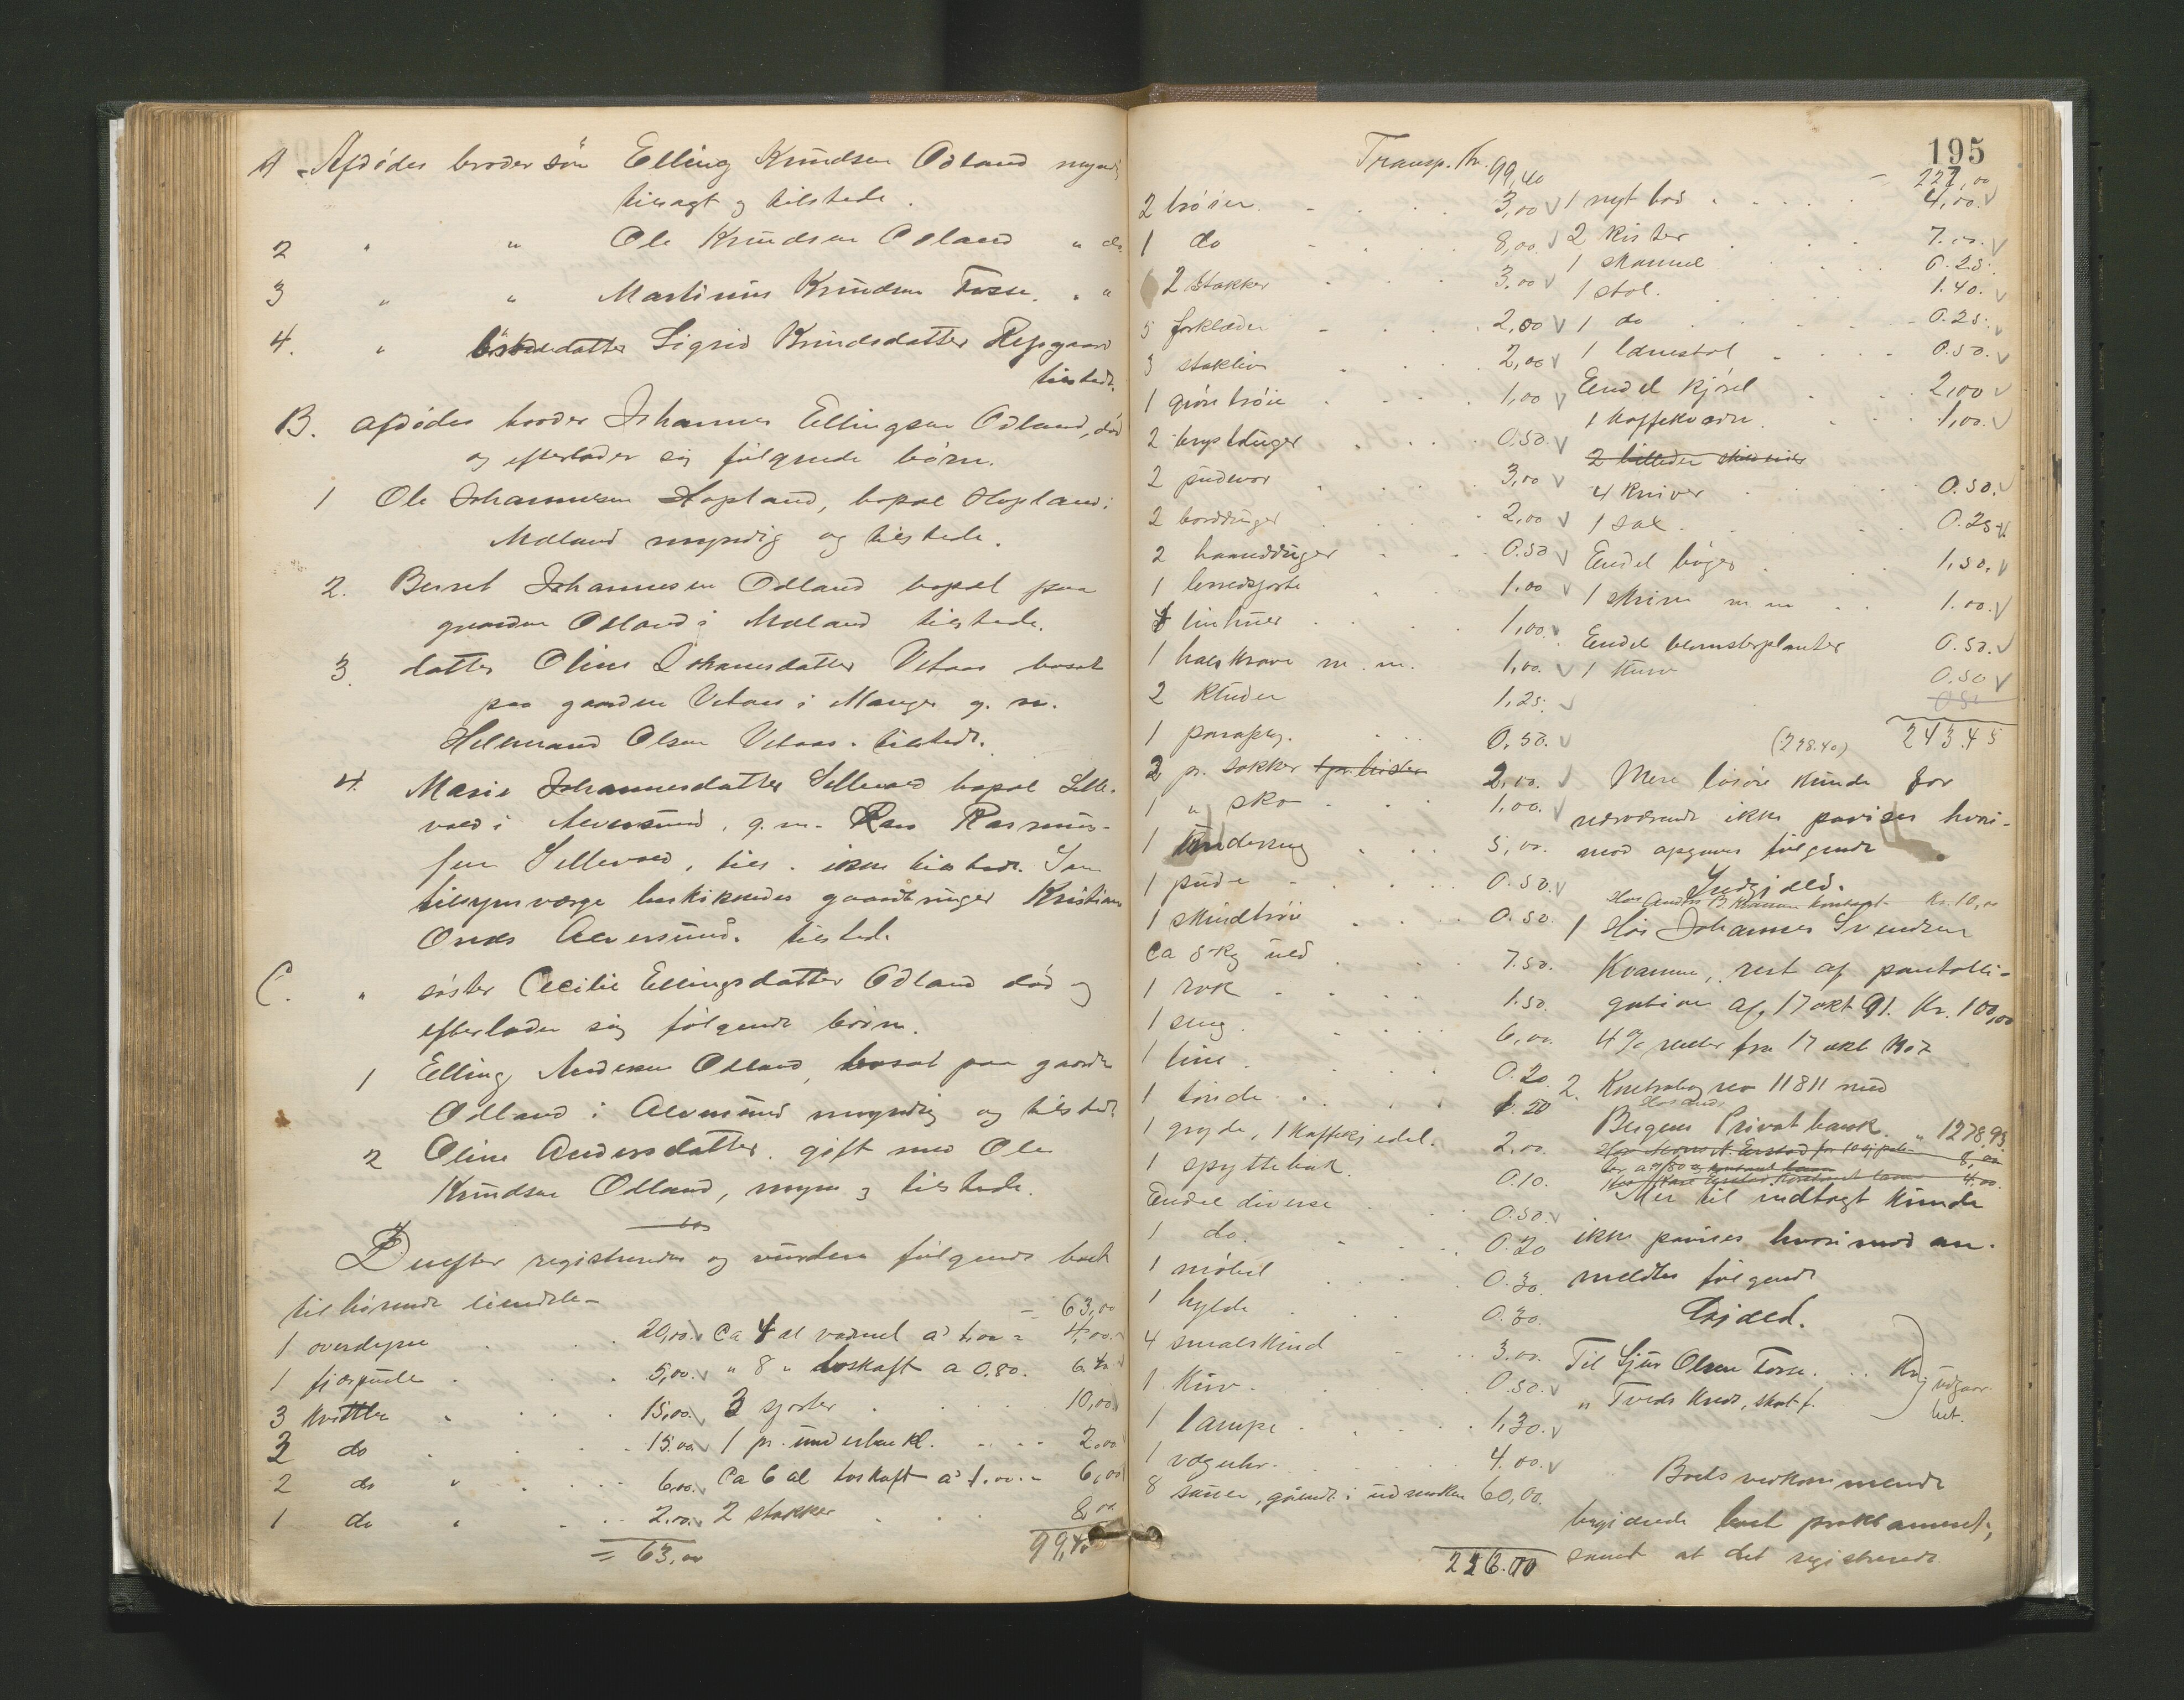 A Afdødes broder søn Elling Knudsen Odland myndig
tilsagt og tilstede.
2 " " Ole Knudsen Odland " do
3 " " Martinus Knudsen Fosse. " "
4. " datter Sigrid Knudsdatter Repgaard
tilstede.
B. afdødes broder Johannes Ellingsen Odland, død
og efterlader sig følgende børn.
1 Ole Johannesen Hopland, bopæl Hopland i
Mæland myndig og tilstede.
2. Bernt Johannesen Odland bopæl paa
gaarden Odland i Mæland tilstede.
3. datter Oline Johannesdatter Vetaas bosat
paa gaarden Vetaas i Manger g. m.
Olsen Vetaas. tilstede.
4. Marie Johannesdatter Sellevold bopæl Selle-
vold i Alversund, g. m. Rasmus-
sen Sellevold, tils. ikke tilstede. Som
tilsynsværge beskikkedes gaardbruger Kristian
Alversund. tilstede
C. " søster Cecilie Ellingsdatter Odland død og
efterlader sig følgende børn.
1 Elling Andersen Odland, bosat paa gaarden
Odland i Alversund myndig og tilstede
2 Oline Andersdatter gift med Ole
Knudsen Odland, mynd og tilstede.
Derefter registreredes og vurderes følgende boet
tilhørende eiendele
= 63,00
1 overdyne . . 20,00 v Ca 4 al vadmel a 1,00 = 4,00
1 fjærpude . . 5,00 v " 8 " toskaft a 0,80. 6.40
3 kvitler . . 15,00 v 3 sjorter . . 10,00
3 do . . 15.00 v 1 pr. underbenkl. . . 2.00
2 do " . . 6.00 v Ca 6 al toskaft a 1.00 = 6,00
1 do " . . 2.00 v 2 stakker . . 8,00
= 63,00 99,40
195
Transp. Kr. 99,40
2 trøier . . 3,00 v
1 do . . 8,00 v
2 stakker . . 3,00 v
5 forklæder . . 2,00 v
3 stakliv . . 2,00 v
1 trøie . . 1,00 v
2 brystduger . . 0.50 v
2 pudevor . . 3,00 v
2 bordduger . . 2,00 v
2 haandduger . . 0.50 v
1 lerredsjorte . . 1.00 v
4 linhuer . . 1,00 v
1 halskrave m. m. 1,00. v
2 kluder 1,25. v
1 paraply. . . 0,50. v
2 pr. sokker 2,00. v
1 " sko . . 1,00. v
1 . . 5,00.
1 pude . . 0.50. v
1 skindtrøie . . 0.50.
Ca 5 kg uld . . 7.50.
1 rok . . 1.50.
1 seng . . 6,00.
1 tine . . 0.20
1 tønde . . 1.20
1 gryde, 1 kaffekjedel. 2.00
1 spyttebak . . 0.10.
Endel diverse . . 0.50. v
1 do. . . 0.20
1 møbel . . 0.30.
1 hylde . . 0.30.
4 smalskind . . 3.00.
1 kurv . . 0.50. v
1 lampe . . 1,30. v
1 væguhr . . 4.00. v
8 sauer, gaaende i udmarken 60,00.
226.00
= 227,00
1 nyt bord . . 4,00. v
2 kister . . 7.00. v
1 skammel . . 0.25.
1 stol . . 1.40. v
1 do . . 0.25. v
1 lænestol . . 0.50. v
Endel kjørel . . 2,00 v
1 kaffekværn . . 1,00. v
2 billeder
4 kniver . . 0.50. v
1 sax . . 0.25 v
Endel bøger . . 1,50. v
1 skrin m m . . 1.00. v
Endel blomsterplanter 0.50. v
1 kurv 0,50 v
0.50
(298.40) 243.45
Mere løsøre kunde for
nærværende ikke paavises hvori-
mod opgaves følgende
Indgjæld.
Kr. 10,00
1 Hos Johannes Svendsen
Kvamme, rest af pantobli-
gation af 17 okt 91. Kr. 100,00
4 % renter fra 17 okt 1907
2. Kontrabog no 11811 med
Bergens Privatbank. " 1278,93
8,00
4.00.
Mer til indtægt kunde
ikke paavises hvorimod an-
meldtes følgende
Udgjæld.
Til Sjur Olsen Fosse . . Kr. udgaar
" Tveds Kreds, skat f. bet.
Boets vedkommende
begjærede boet proklameret,
samt at det registrerede